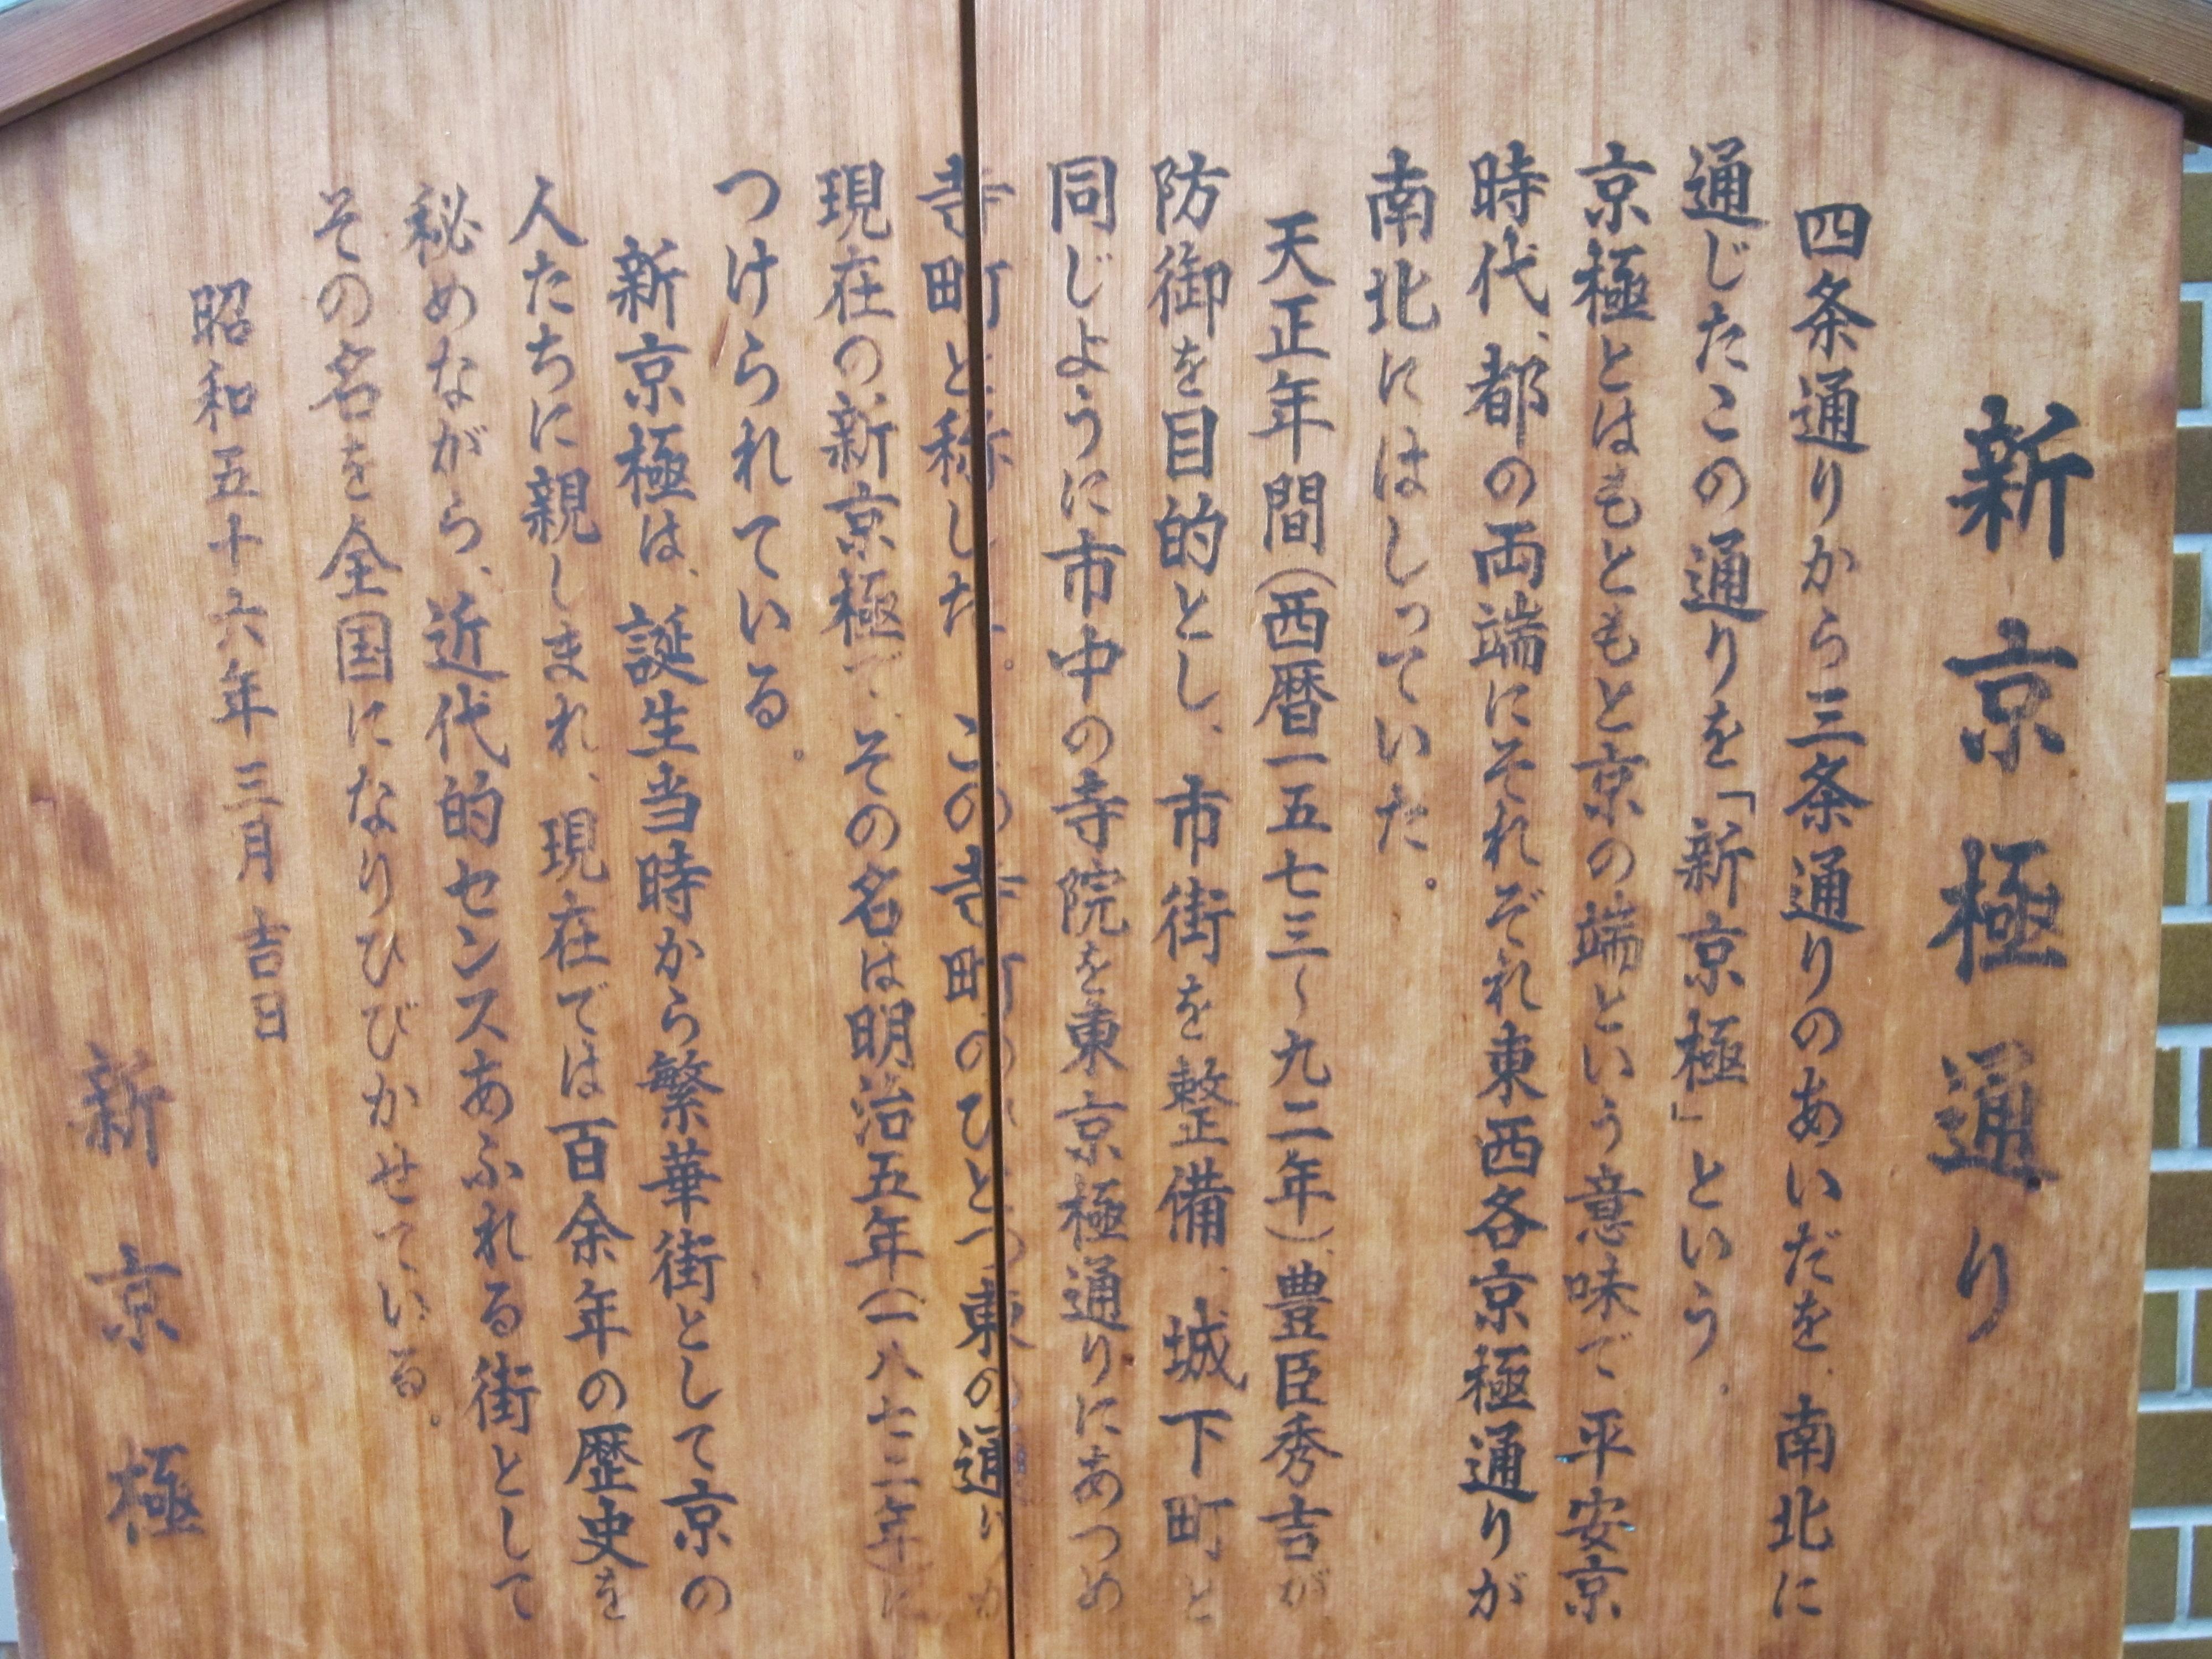 新京極通り
四条通りから三条通りのあいだを、南北に
通じたこの通りを「新京極」という。
京極とはもともと京の端という意味で平安京
時代、都の両端にそれぞれ東西各京極通りが
南北にはしっていた。
天正年間(西暦一五七三〜九二年)、豊臣秀吉が
防御を目的とし、市街を整備、城下町と
同じように市中の寺院を東京極通りにあつめ
寺町と称した。この寺町のひとつ東の通りが
現在の新京極で、その名は明治五年(一八七二年)に
つけられている。
新京極は、誕生当時から繁華街として京の
人たちに親しまれ、現在では百余年の歴史を
秘めながら、近代的センスあふれる街として
その名を全国になりひびかせている。
昭和五十六年三月吉日
新京極